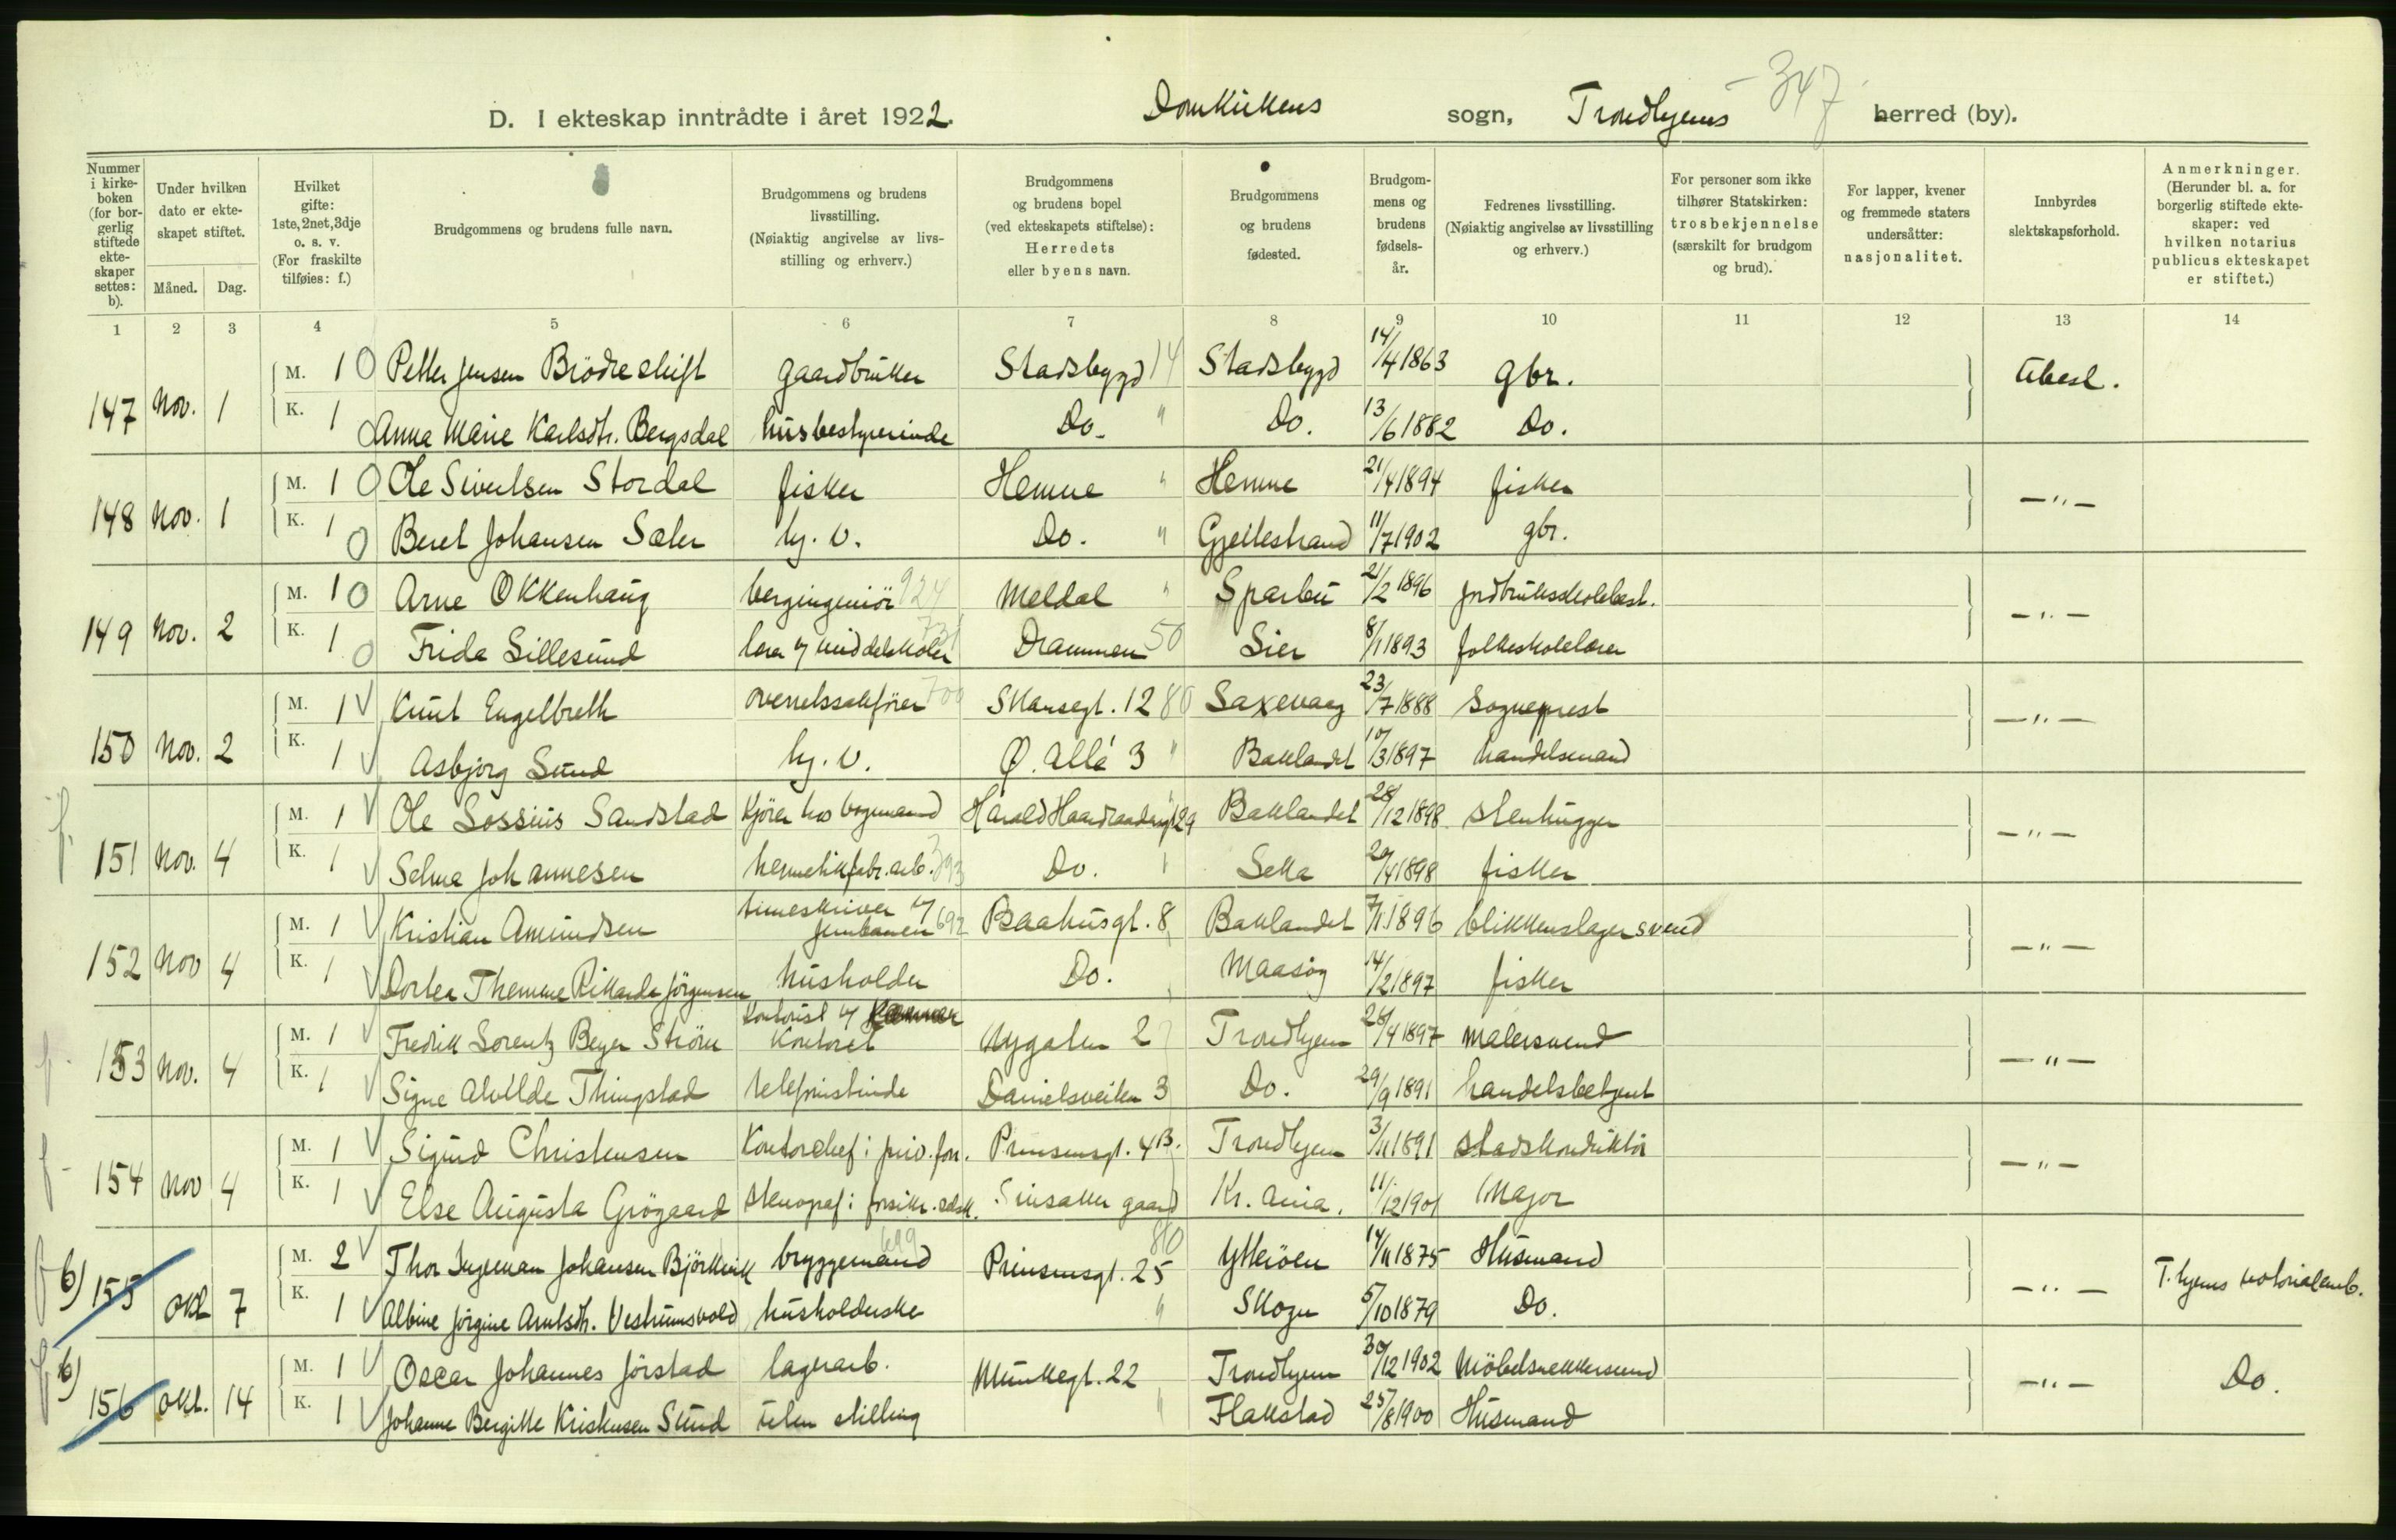 D. I ekteskap inntrådte i året 1922. Domkirkens sogn, Trondhjems 347 herred (by).
Nummer i kirkeboken (for borgerlig stiftede ekteskaper settes: b).
Under hvilken dato er ekteskapet stiftet.
Måned. Dag.
Hvilket gifte: 1ste, 2net, 3dje o. s. v. (For fraskilte tilføies: f.)
Brudgommens og brudens fulle navn.
Brudgommens og brudens livsstilling. (Nøiaktig angivelse av livsstilling og erhverv.)
Brudgommens og brudens bopel (ved ekteskapets stiftelse): Herredets eller byens navn.
Brudgommens og brudens fødested.
Brudgommens og brudens fødselsår.
Fedrenes livsstilling. (Nøiaktig angivelse av livsstilling og erhverv.)
For personer som ikke tilhører Statskirken: trosbekjennelse (særskilt for brudgom og brud).
For lapper, kvener og fremmede staters undersåtter: nasjonalitet.
Innbyrdes slektskapsforhold.
Anmerkninger. (Herunder bl. a. for borgerlig stiftede ekteskaper: ved hvilken notarius publicus ekteskapet er stiftet.)
1 2 3 4 5 6 7 8 9 10 11 12 13 14
147 Nov. 1 M. 1 Petter Jensen Brödreskift gaardbruker Stadsbygd 14 Stadsbygd 14/4 1863 gbr. Ubesl.
K. 1 Anna Marie Karlsdtr. Bergsdal husbestyrerinde Do. " Do. 13/6 1882 Do.
148 Nov. 1 M. 1 Ole Sivertsen Stordal fisker Hemne " Hemne 21/4 1894 fisker -"-
K. 1 Beret Johansen Sæter hj. v. Do. " Gjeitestrand 11/7 1902 gbr.
149 Nov. 2 M. 1 Arne Okkenhaug bergingeniör 924 Meldal " Sparbu 21/2 1896 jordbruksskolebest. -"-
K. 1 Frida Sillesund lær. v/ middelskolen 731 Drammen 50 Lier 8/1 1893 folkeskolelærer
150 Nov. 2 M. 1 V Knut Engelbreth overretssakförer 700 Skansegt. 12 80 Saxevaag 23/7 1888 Sogneprest -"-
K. 1 V Asbjörg Sund hj. v. Ø. Allé 3 " Baklandet 10/3 1897 handelsmand
f. 151 Nov. 4 M. 1 V Ole Lossius Sandstad kjörer hos vognmand Harald Haardraadesgt 29 Baklandet 28/12 1898 stenhugger -"-
K. 1 V Selma Johannesen hermetikfabr. arb. 393 Do. " Leka 20/4 1898 fisker
152 Nov 4 M. 1 V Kristian Amundsen timeskriver v/ jernbanen 692 Baahusgt. 8 Baklandet 7/1 1896 blikkenslagersvend -"-
K. 1 V Dortea Themine Rikarda Jörgensen husholder Do. Maasöy 14/2 1897 fisker
f. 153 Nov. 4 M. 1 V Fredrik Lorentz Beyer Ström kontorist v/ Kontoret Nygaten 2 Trondhjem 28/4 1897 malersvend -"-
K. 1 V Signe Alvilde Thingstad telefonistinde Danielsveiten 3 Do. 29/9 1891 handelsbetjent
f. 154 Nov 4 M. 1 V Sigurd Christensen Kontorchef i priv. forr. Prinsensgt. 4B. Trondhjem 3/11 1891 stadskonduktör -"-
K. 1 V Else Augusta Grögaard stenograf i forsikr. selsk. Sinsaker gaard Kr.ania. 11/12 1901 Major
f b) 155 Okt 7 M. 2 V Thor Ingeman Johansen Björkvik bryggemand 699 Prinsensgt. 25 80 Ytteröen 14/11 1875 Husmand -"- T.hjems notorialemb.
K. 1 V Albine Jörgine Arntsdtr. Vestrumsvold husholderske " Skogn 5/10 1879 Do.
f b) 156 Okt. 14 M. 1 V Oscar Johannes Jörstad lagerarb. Munkegt. 22 Trondhjem 30/12 1902 Möbelsnekkersvend -"- Do.
K. 1 V Johanne Bergitte Kristensen Sund uten stilling " Flakstad 25/8 1900 Husmand